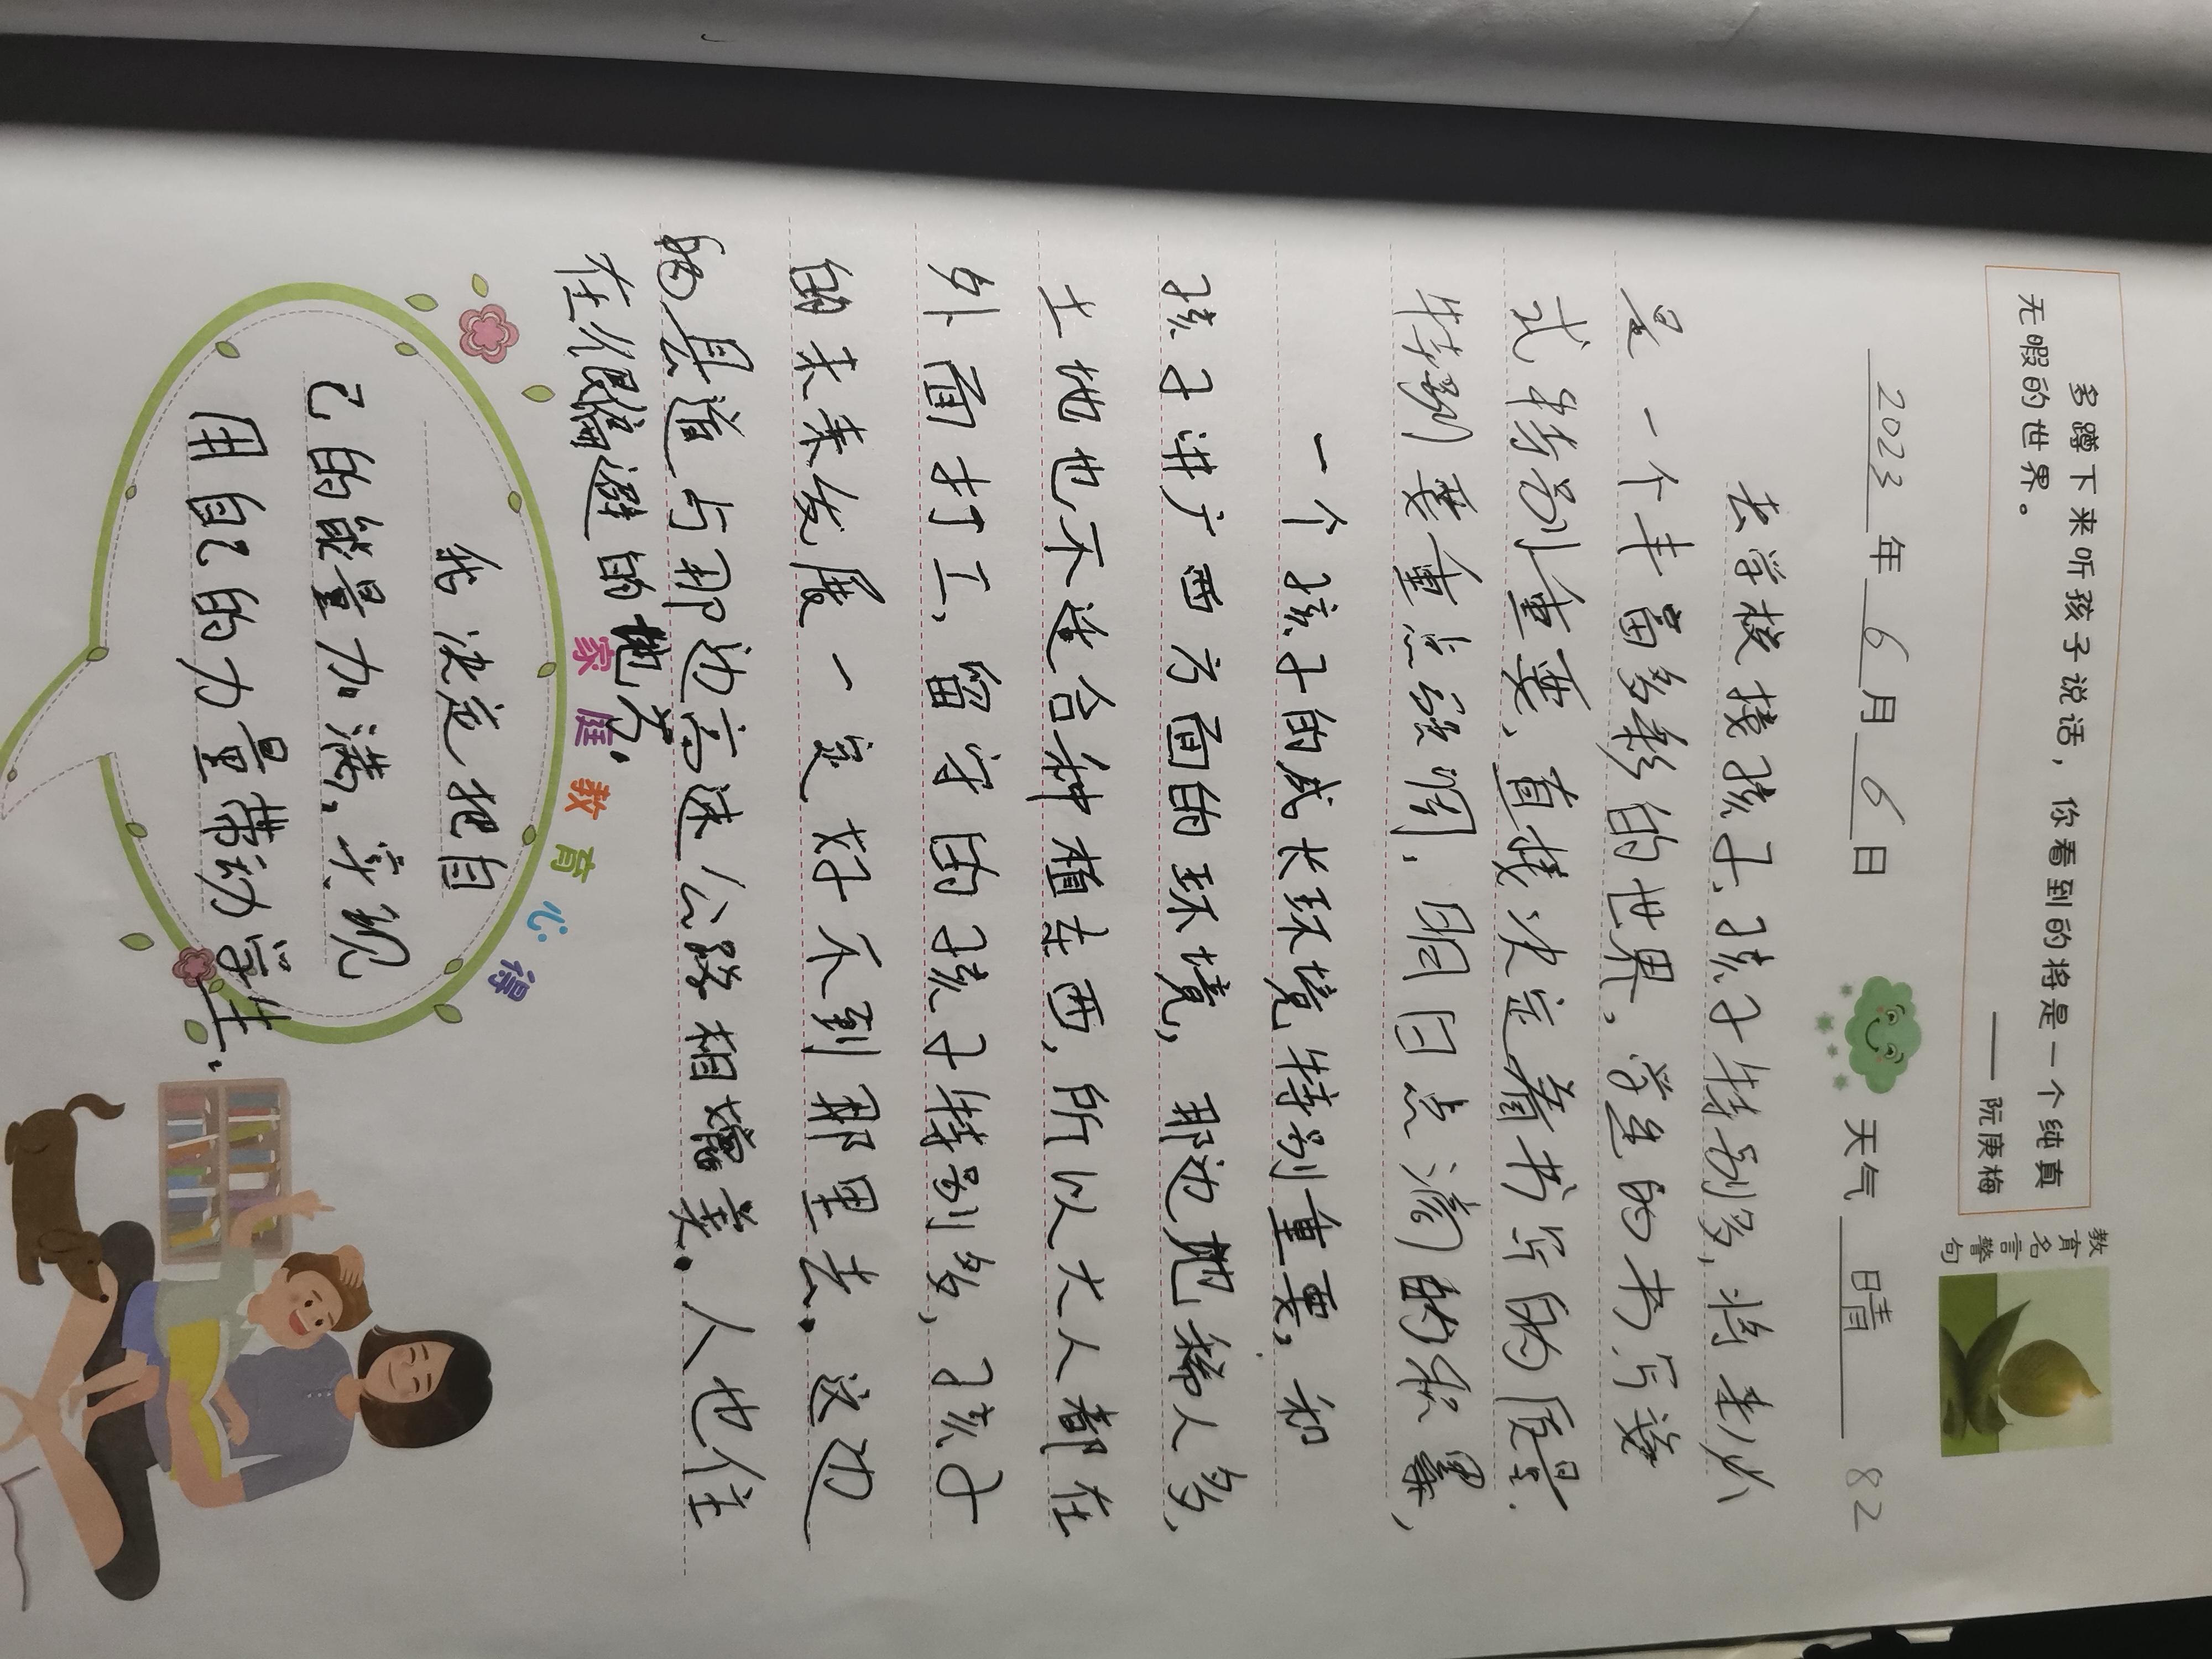 多蹲下来听孩子说话，你看到的将是一个纯真
无暇的世界。
—— 阮庚梅
教育名言警句
2023年6月6日 天气 晴 82
去学校接孩子，孩子特别多，将来必
是一个丰富多彩的世界，学生的书写姿
式特别重要，直接决定着书写的质量.
特别要重点强调，明日点滴的积累，
一个孩子的成长环境特别重要，和
孩子讲广西方面的环境，那边地稀人多，
土地也不适合种植东西，所以大人都在
外面打工，留守的孩子特别多，孩子
的未来发展一定好不到那里去. 这边
的县道与那边高速公路相媲美. 人也住
在很偏避的地方.
家庭教育心得
我决定把自
己的能量加满，实现
用自己的力量带动学生.